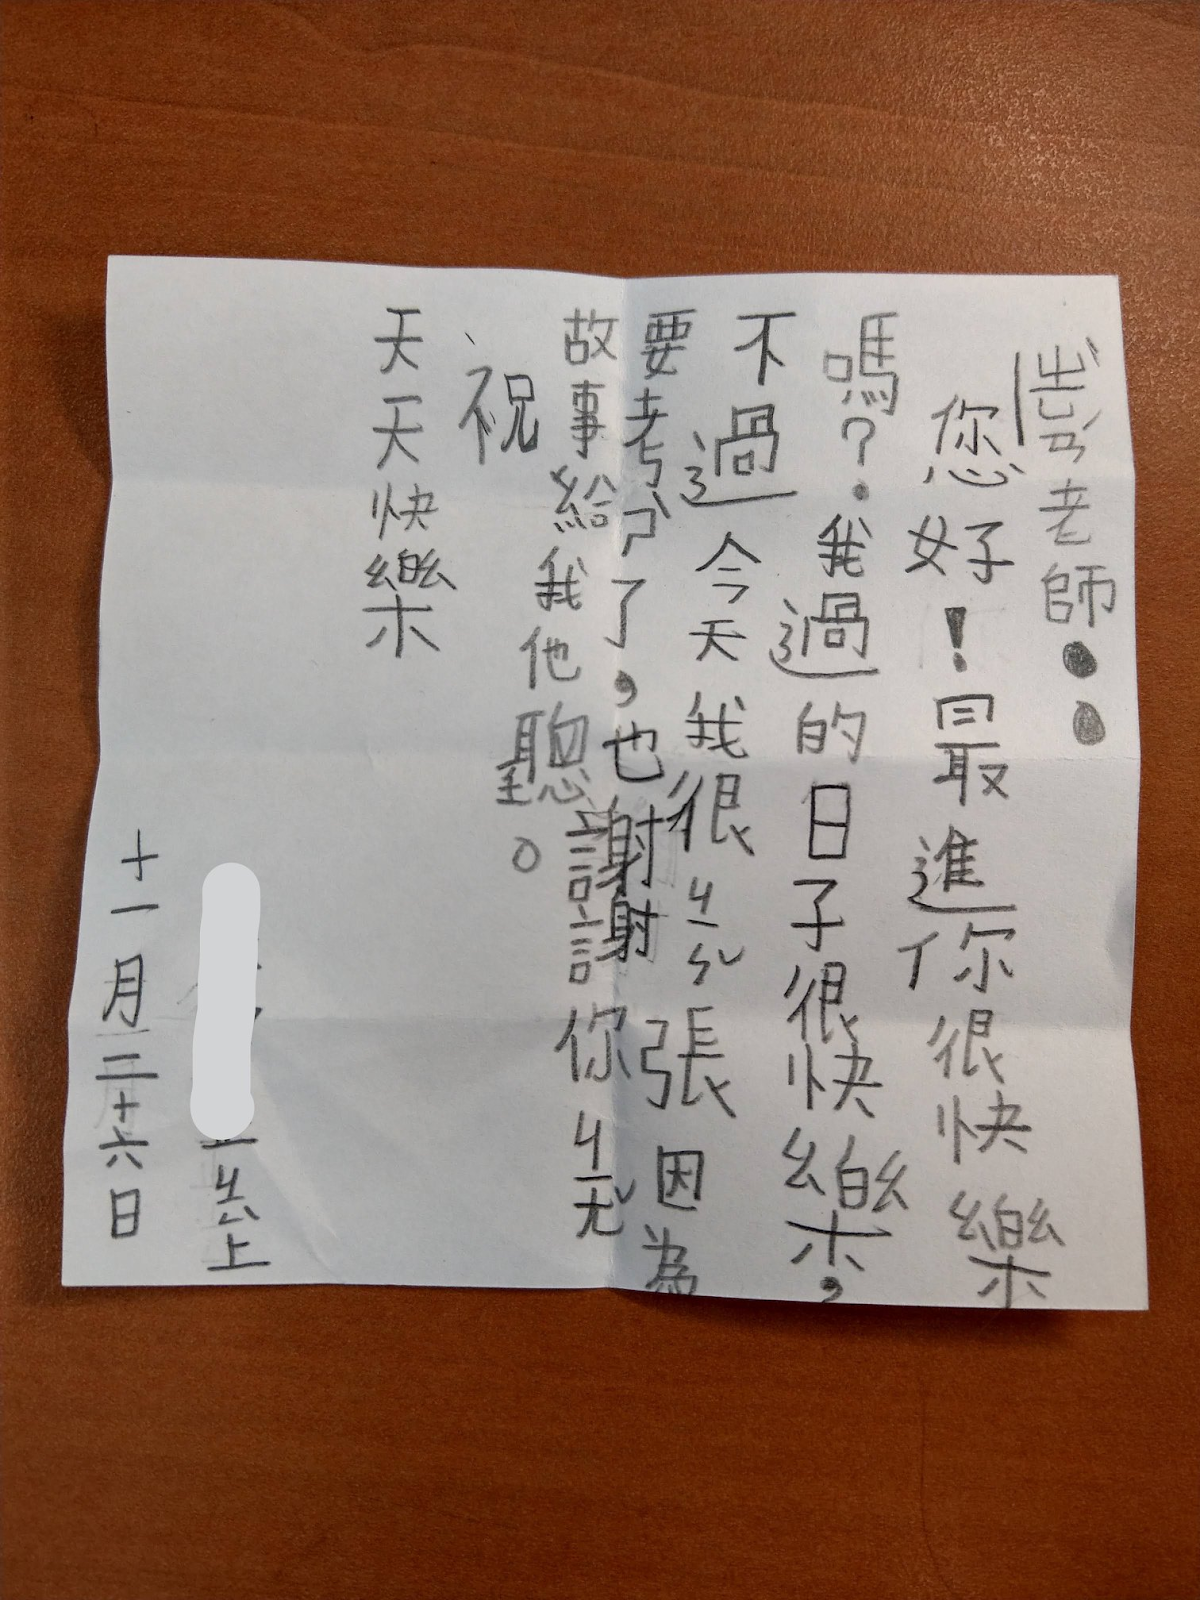 老師：
您好！最進你很快樂
嗎？我過的日子很快樂，
不過今天我很ㄐㄧㄣˇ張因為
要考ㄕˋ了，也謝謝你ㄐㄧㄤˇ
故事給我他聽。
祝
天天快樂
上
十一月二十六日